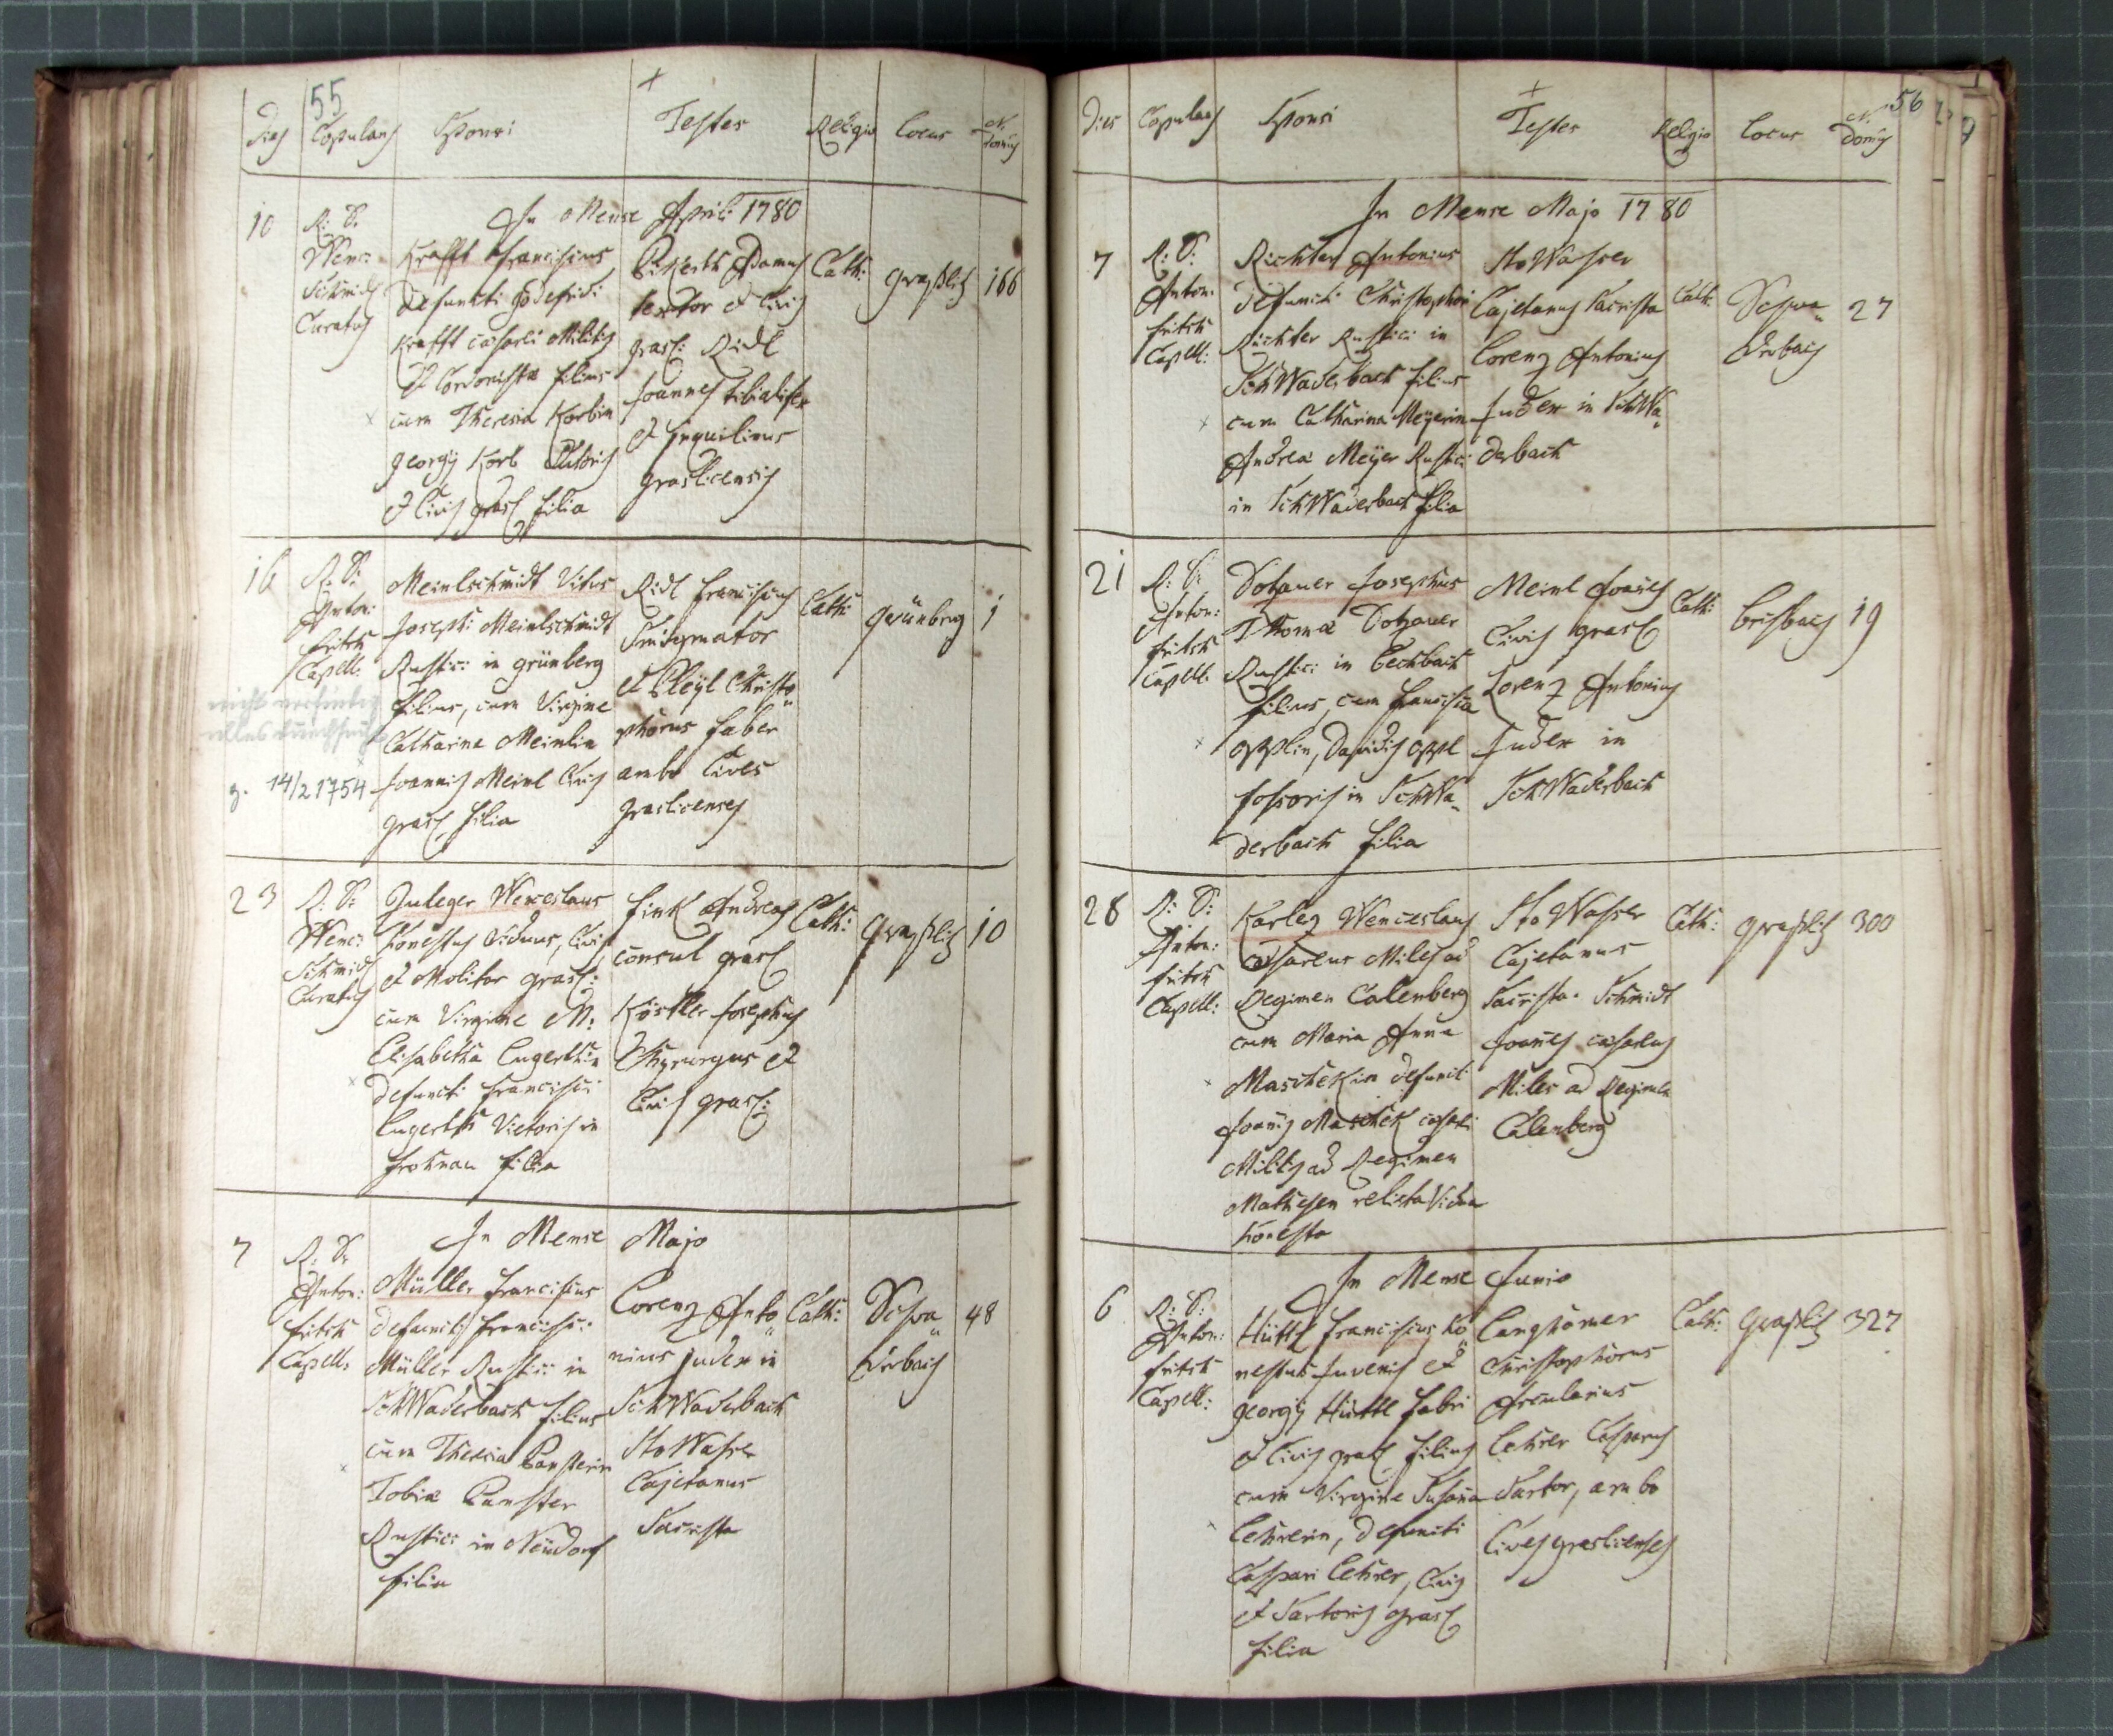 55
Dies Copulans Sponsi Testes Religio Locus N. Domûs
In Mense Aprili 1780
10
R: D:
Wenc:
Schmidt
Curatus
Krafft Franciscus
defuncti Godefridi
Krafft caesarei Militis
et Cordonistae filius
cum Theresia Korbin
Georgÿ Korb
et Civis grasl filia
Adamus
textor et Civis
grasl: Ridl
Joannes tibialifex
et Inquilinus
graslicensis
Cath: Graßlitz 166
16
R: D:
Anton:
Fritsch
Capell:
Meinlschmidt Vitus
Josephi Meinlschmidt
Rustici in grünberg
filius, cum Virgine
Catharina Meinlin
Joannis Meinl Civis
grasl filia
g. 14/2 1754
Ridl Franciscus
Smigmator
et Pleÿl Christo
phorus faber
ambo Cives
graslicenses
Cath: Grünberg 1
23
R: D:
Wenc:
Schmidt
Curatus
Zuleger Wenceslaus
honestus viduus, Civis
et Molitor grasl:
cum Virgine M:
Elisabetha Lugerthin
defuncti Francisci
Lugerth Vietoris in
Frohnau filia
Fink Andreas
consul grasl
Köstler Josephus
Chyrurgus et
Civis grasl:
Cath: Graßlitz 10
In Mense Majo
7
R: D:
Anton:
Fritsch
Capell:
Müller Franciscus
defuncti Francisci
Müller Rustici in
Schwaderbach filius
cum Theresia Pansterin
Tobiae Panster
Rustici in Neudorf
filia
Lorenz Anto
nius Judex in
Schwaderbach
Stowasser
Cajetanus
Sacrista
Cath: Schwa
derbach 48
56
Dies Copulans Sponsi Testes Religio Locus N. Domûs
In Mense Majo 1780
7
R: D:
Anton:
Fritsch
Capell:
Richter Antonius
defuncti Christophori
Richter Rustici in
Schwaderbach filius
cum Catharina Meyerin
Andreae Meÿer Rustici
in Schwaderbach filia
Stowasser
Cajetanus Sacrista
Lorenz Antonius
Judex in Schwa
derbach
Cath: Schwa
derbach 27
21
R: D:
Anton:
Fritsch
Capell:
Dotzauer Josephus
Thomae Dotzauer
Rustici in
filius, cum Francisca
Opplin, Davidis Oppl
fossoris in Schwa
derbach filia
Meinl Joañes
Civis grasl
Lorenz Antonius
Judex in
Schwaderbach
Cath: 19
28
R: D:
Anton:
Fritsch
Capell:
Karlez Wenceslaus
caesareus Miles ad
Regimen Calenberg
cum Maria Anna
Maschekin defuncti
Joañis Maschek caesarei
Militis ad Regimen
Mathesen relicta Vidua
honesta
Stowasser
Cajetanus
Sacrista. Schmidt
Joañes caesareus
Miles ad Regimen
Calenberg
Cath: Graßlitz 300
In Mense Junio
6
R: D:
Anton:
Fritsch
Capell:
Hüttl Franciscus ho
nestus Juvenis et
Georgÿ Hüttl fabri
et Civis grasl filius
cum Virgine Susana
Lehrerin, defuncti
Caspari Lehrer, Civis
et Sartoris grasl
filia
Langhamer
Christophorus
Arcularius
Lehrer Casparus
Sartor, ambo
Cives graslicenses
Cath: Graßlitz 327